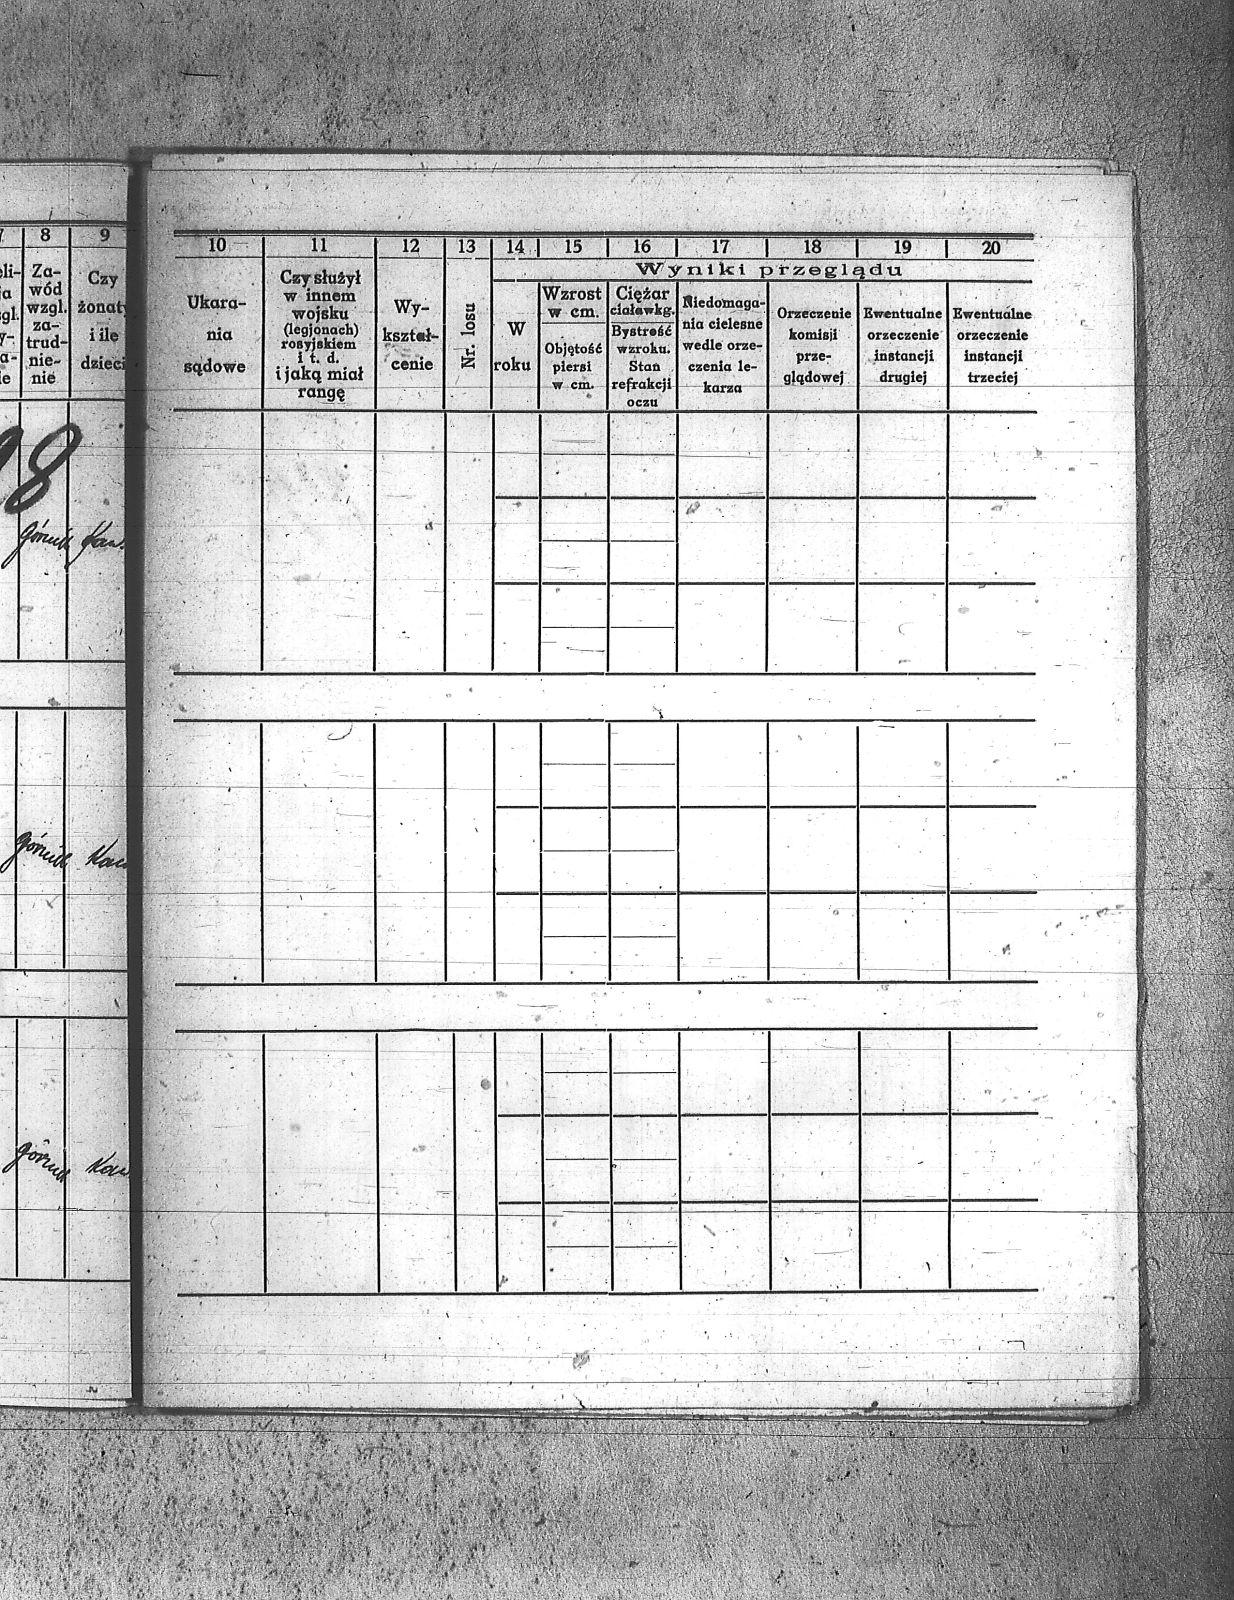 7 8 9
eli-
ja
zgl.
y-
a-
ie
Za-
wód
wzgl.
za-
trud-
nie-
nie
Czy
żonaty
i ile
dzieci
8
górnik Kaw.
górnik Kaw
górnik Kaw.
10 11 12 13 14 15 16 17 18 19 20
Wyniki przeglądu
Ukara-
nia
sądowe
Czy służył
w innem
wojsku
(legjonach)
rosyjskiem
i t. d.
i jaką miał
rangę
Wy-
kształ-
cenie
Nr. losu
W
roku
Wzrost
w cm.
Objętość
piersi
w cm.
Ciężar
ciała w kg.
Bystrość
wzroku.
Stan
refrakcji
oczu
Niedomaga-
nia cielesne
wedle orze-
czenia le-
karza
Orzeczenie
komisji
prze-
glądowej
Ewentualne
orzeczenie
instancji
drugiej
Ewentualne
orzeczenie
instancji
trzeciej